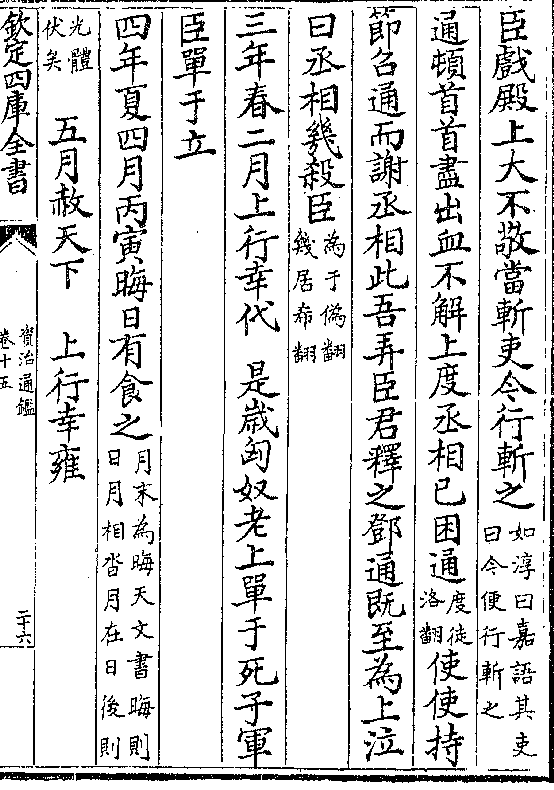 臣戲殿上大不敬當斬吏今行斬之如淳曰嘉語其吏曰今便行斬之
通頓首首盡出血不解上度丞相已困通度徒洛翻使使持
節召通而謝丞相此吾弄臣君釋之鄧通既至為上泣
曰丞相幾殺臣為于偽翻幾居希翻
三年春二月上行幸代 是歲匈奴老上單于死子軍
臣單于立
四年夏四月丙寅晦日有食之月末為晦天文書晦則日月相沓月在日後則
光體伏矣 五月赦天下 上行幸雍
欽定四庫全書 資治通鑑卷十五 二十六